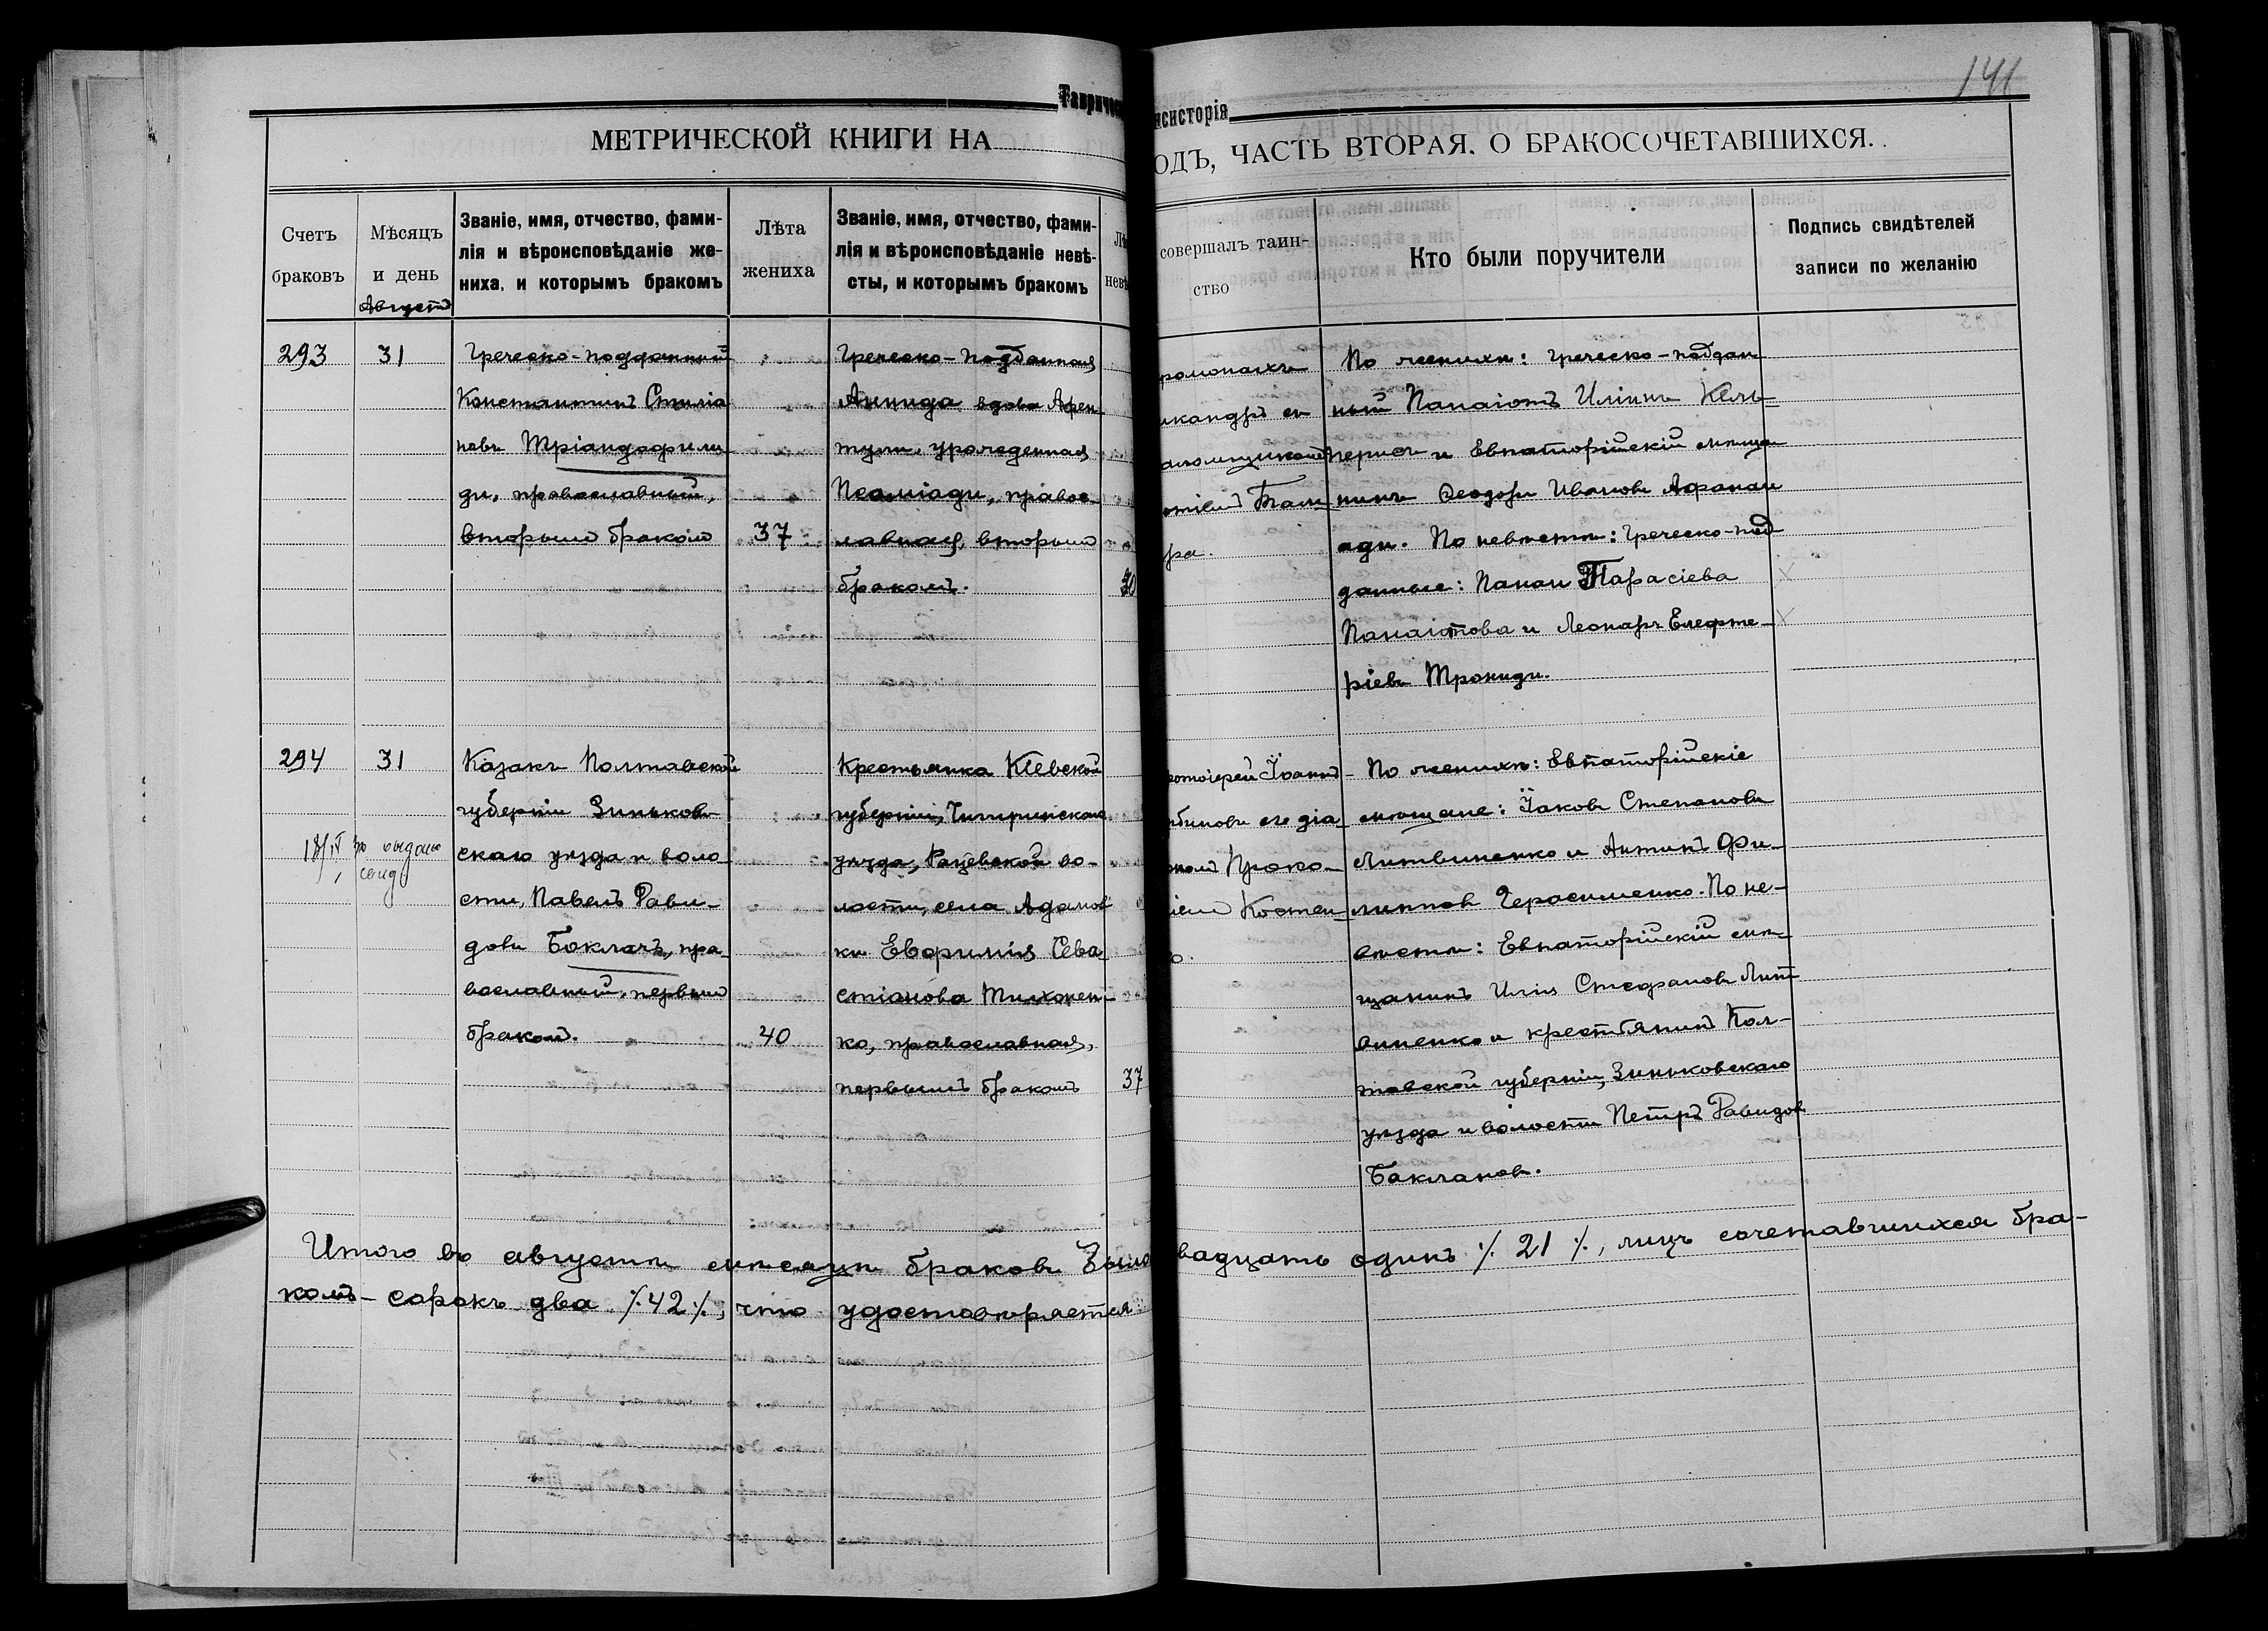 141
Тавричес
нсисторія
МЕТРИЧЕСКОЙ КНИГИ НА
ОДЪ, ЧАСТЬ ВТОРАЯ. О БРАКОСОЧЕТАВШИХСЯ.
Счетъ
браковъ
Мѣсяцъ
и день
Августъ
Званіе, имя, отчество, фами-
лія и вѣроисповѣданіе же-
ниха, и которымъ бракомъ
Лѣта
жениха
Званіе, имя, отчество, фами-
лія и вѣроисповѣданіе невѣ-
сты, и которымъ бракомъ
Лѣ
невѣ
совершалъ таин-
ство
Кто были поручители
Подпись свидѣтелей
записи по желанію
293
31
Греческо-подданный
Константинъ Стиліа
новъ Тріандафили
ди, православный,
вторымъ бракомъ
37
Греческо-подданная
Аннида вдова Афен
тули, урожденная
Псоміади, правос-
лавная, вторымъ
бракомъ.
30
ромонахъ
икандръ съ
аломщикомъ
Бали
ра.
По женихѣ: греческо-поддан
ный Панаіотъ Иліинъ Кель-
перисъ и Евпаторійскій мѣща
нинъ Ѳеодоръ Ивановъ Афанаси
ади. По невѣстѣ: Греческо-под
данные: Панаи Тарасіева
Панаіотова и Леонаръ Елефте-
ріевъ Трониди.
294
31
18/IV выдано
свид
Казакъ Полтавской
губерніи Зиньков-
скаго уѣзда и воло
сти, Павелъ Дави-
довъ Бокланъ, пра-
вославный, первымъ
бракомъ.
40
Крестьянка Кіевской
губерніи, Чигиринскаго
уѣзда, Рацевской во-
лости, села Адамов
ки Евфимія Сева-
стіанова Тихонен-
ко, православная,
первымъ бракомъ
37
ротоіерей Іоаннъ
биновъ съ діа
кономъ Проко-
іемъ Костен
о.
По женихѣ: Евпаторійскіе
мѣщане: Іаковъ Степановъ
Литвиненко и Антонъ Фи-
липповъ Герасименко. По не-
вѣстѣ: Евпаторійскій мѣ-
щанинъ Илія Стефановъ Лит
виненко и крестьянинъ Пол-
тавской губерніи, Зиньковскаго
уѣзда и волости Петръ Давидовъ
Баклановъ.
Итого въ августѣ мѣсяцѣ браковъ было вадцать одинъ ⁒ 21 ⁒, лицъ сочетавшихся бра-
комъ - сорокъ два ⁒ 42 ⁒, что удостовѣряется: